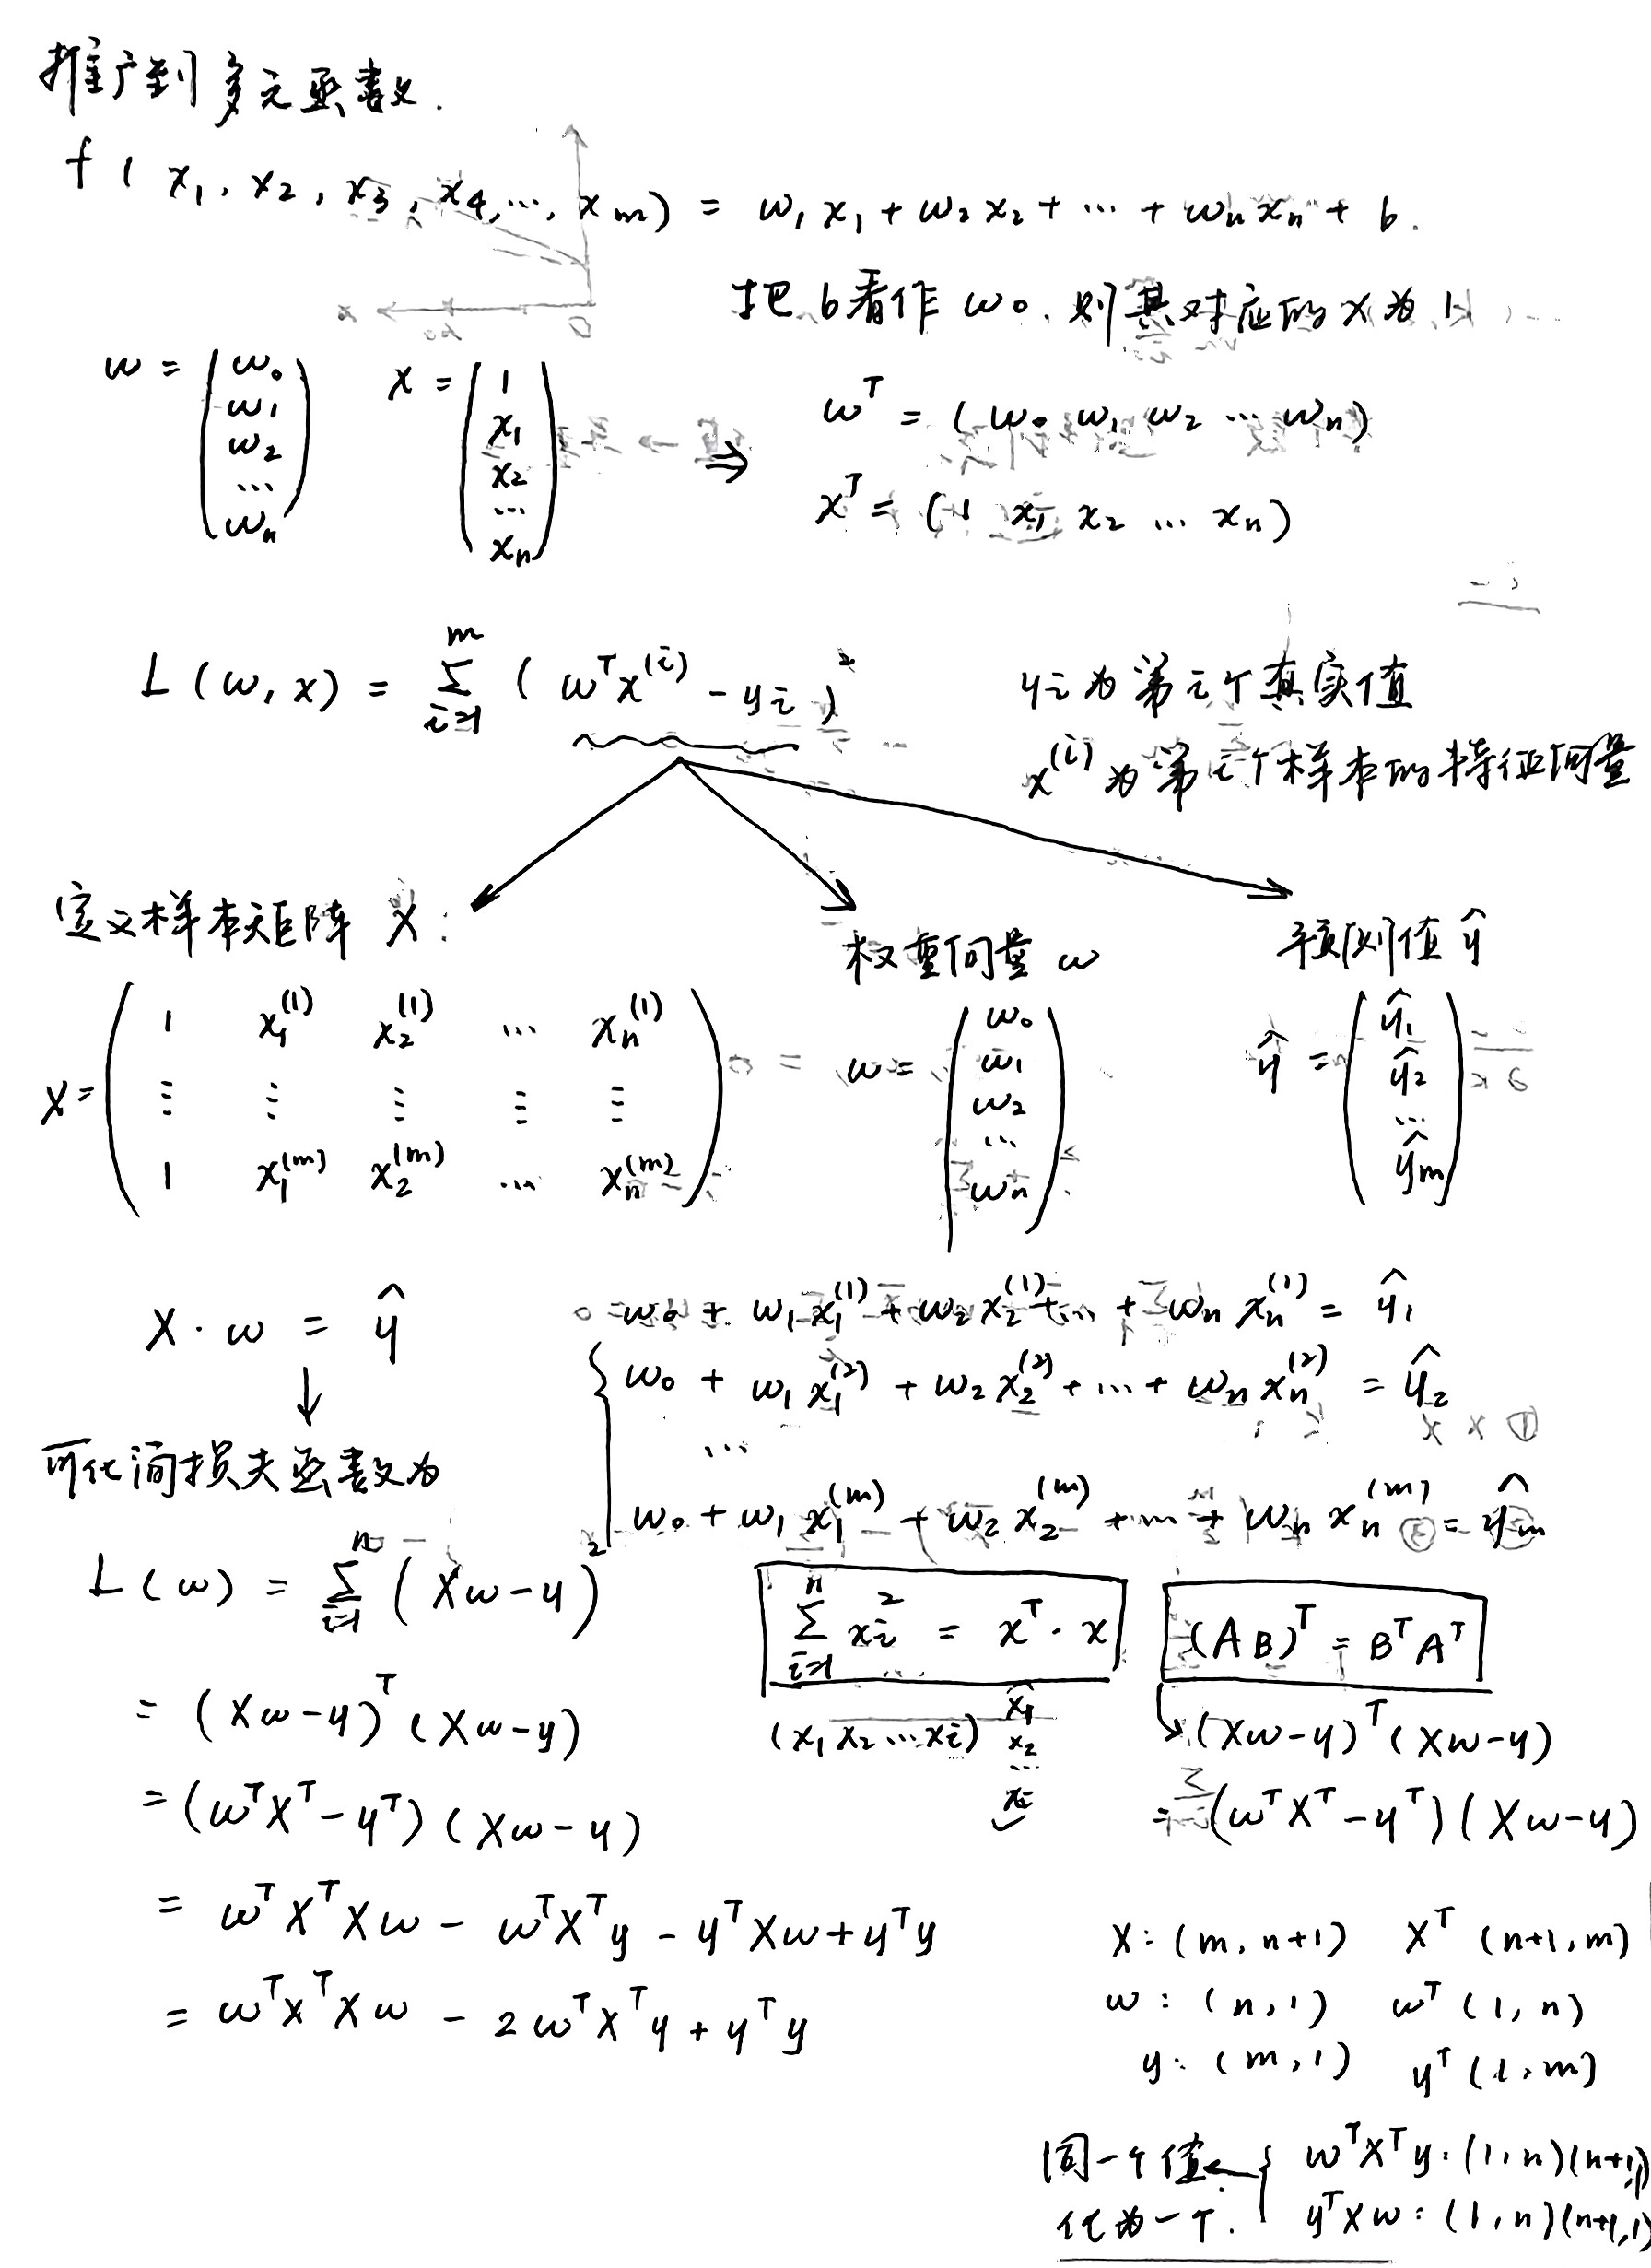 推广到多元函数.
f ( x₁, x₂, x₃, x₄, ⋯, xₘ) = w₁x₁ + w₂x₂ + ⋯ + wₙxₙ + b.
把 b看作 w₀. 则其对应的 x 为 1
w = (w₀ w₁ w₂ ⋯ wₙ) x = (1 x₁ x₂ ⋯ xₙ) ⇒ wᵀ = ( w₀ w₁ w₂ ⋯ wₙ)
xᵀ = (1 x₁ x₂ ⋯ xₙ)
L (w, x) = Σᵢ₌₁ᵐ ( wᵀx⁽ⁱ⁾ - yᵢ )² yᵢ 为第 i 个真实值
x⁽ⁱ⁾ 为第 i 个样本的特征向量
定义样本矩阵 X : 权重向量 w 预测值 ŷ
X = ( 1 x₁⁽¹⁾ x₂⁽¹⁾ ⋯ xₙ⁽¹⁾
⋮ ⋮ ⋮ ⋮ ⋮
1 x₁⁽ᵐ⁾ x₂⁽ᵐ⁾ ⋯ xₙ⁽ᵐ⁾ )
w = (w₀ w₁ w₂ ⋯ wₙ)
ŷ = (ŷ₁ ŷ₂ ⋯ ŷₘ)
X · w = ŷ
↓
w₀ + w₁x₁⁽¹⁾ + w₂x₂⁽¹⁾ + ⋯ + wₙxₙ⁽¹⁾ = ŷ₁
w₀ + w₁x₁⁽²⁾ + w₂x₂⁽²⁾ + ⋯ + wₙxₙ⁽²⁾ = ŷ₂
⋯
w₀ + w₁x₁⁽ᵐ⁾ + w₂x₂⁽ᵐ⁾ + ⋯ + wₙxₙ⁽ᵐ⁾ = ŷₘ
可化简损失函数为
L (w) = Σᵢ₌₁ⁿ ( Xw - y )²
= (Xw - y)ᵀ (Xw - y)
= (wᵀXᵀ - yᵀ) (Xw - y)
= wᵀXᵀXw - wᵀXᵀy - yᵀXw + yᵀy
= wᵀXᵀXw - 2wᵀXᵀy + yᵀy
Σᵢ₌₁ⁿ xᵢ² = xᵀ · x
(x₁ x₂ ⋯ xᵢ) x₁ x₂ ⋯ xᵢ
(AB)ᵀ = BᵀAᵀ
(Xw - y)ᵀ (Xw - y)
= (wᵀXᵀ - yᵀ) (Xw - y)
X : (m, n+1) Xᵀ (n+1, m)
w : (n, 1) wᵀ (1, n)
y : (m, 1) yᵀ (1, m)
同一个值 ← { wᵀXᵀy : (1, n)(n+1, 1)
化为一个. yᵀXw : (1, n)(n+1, 1)